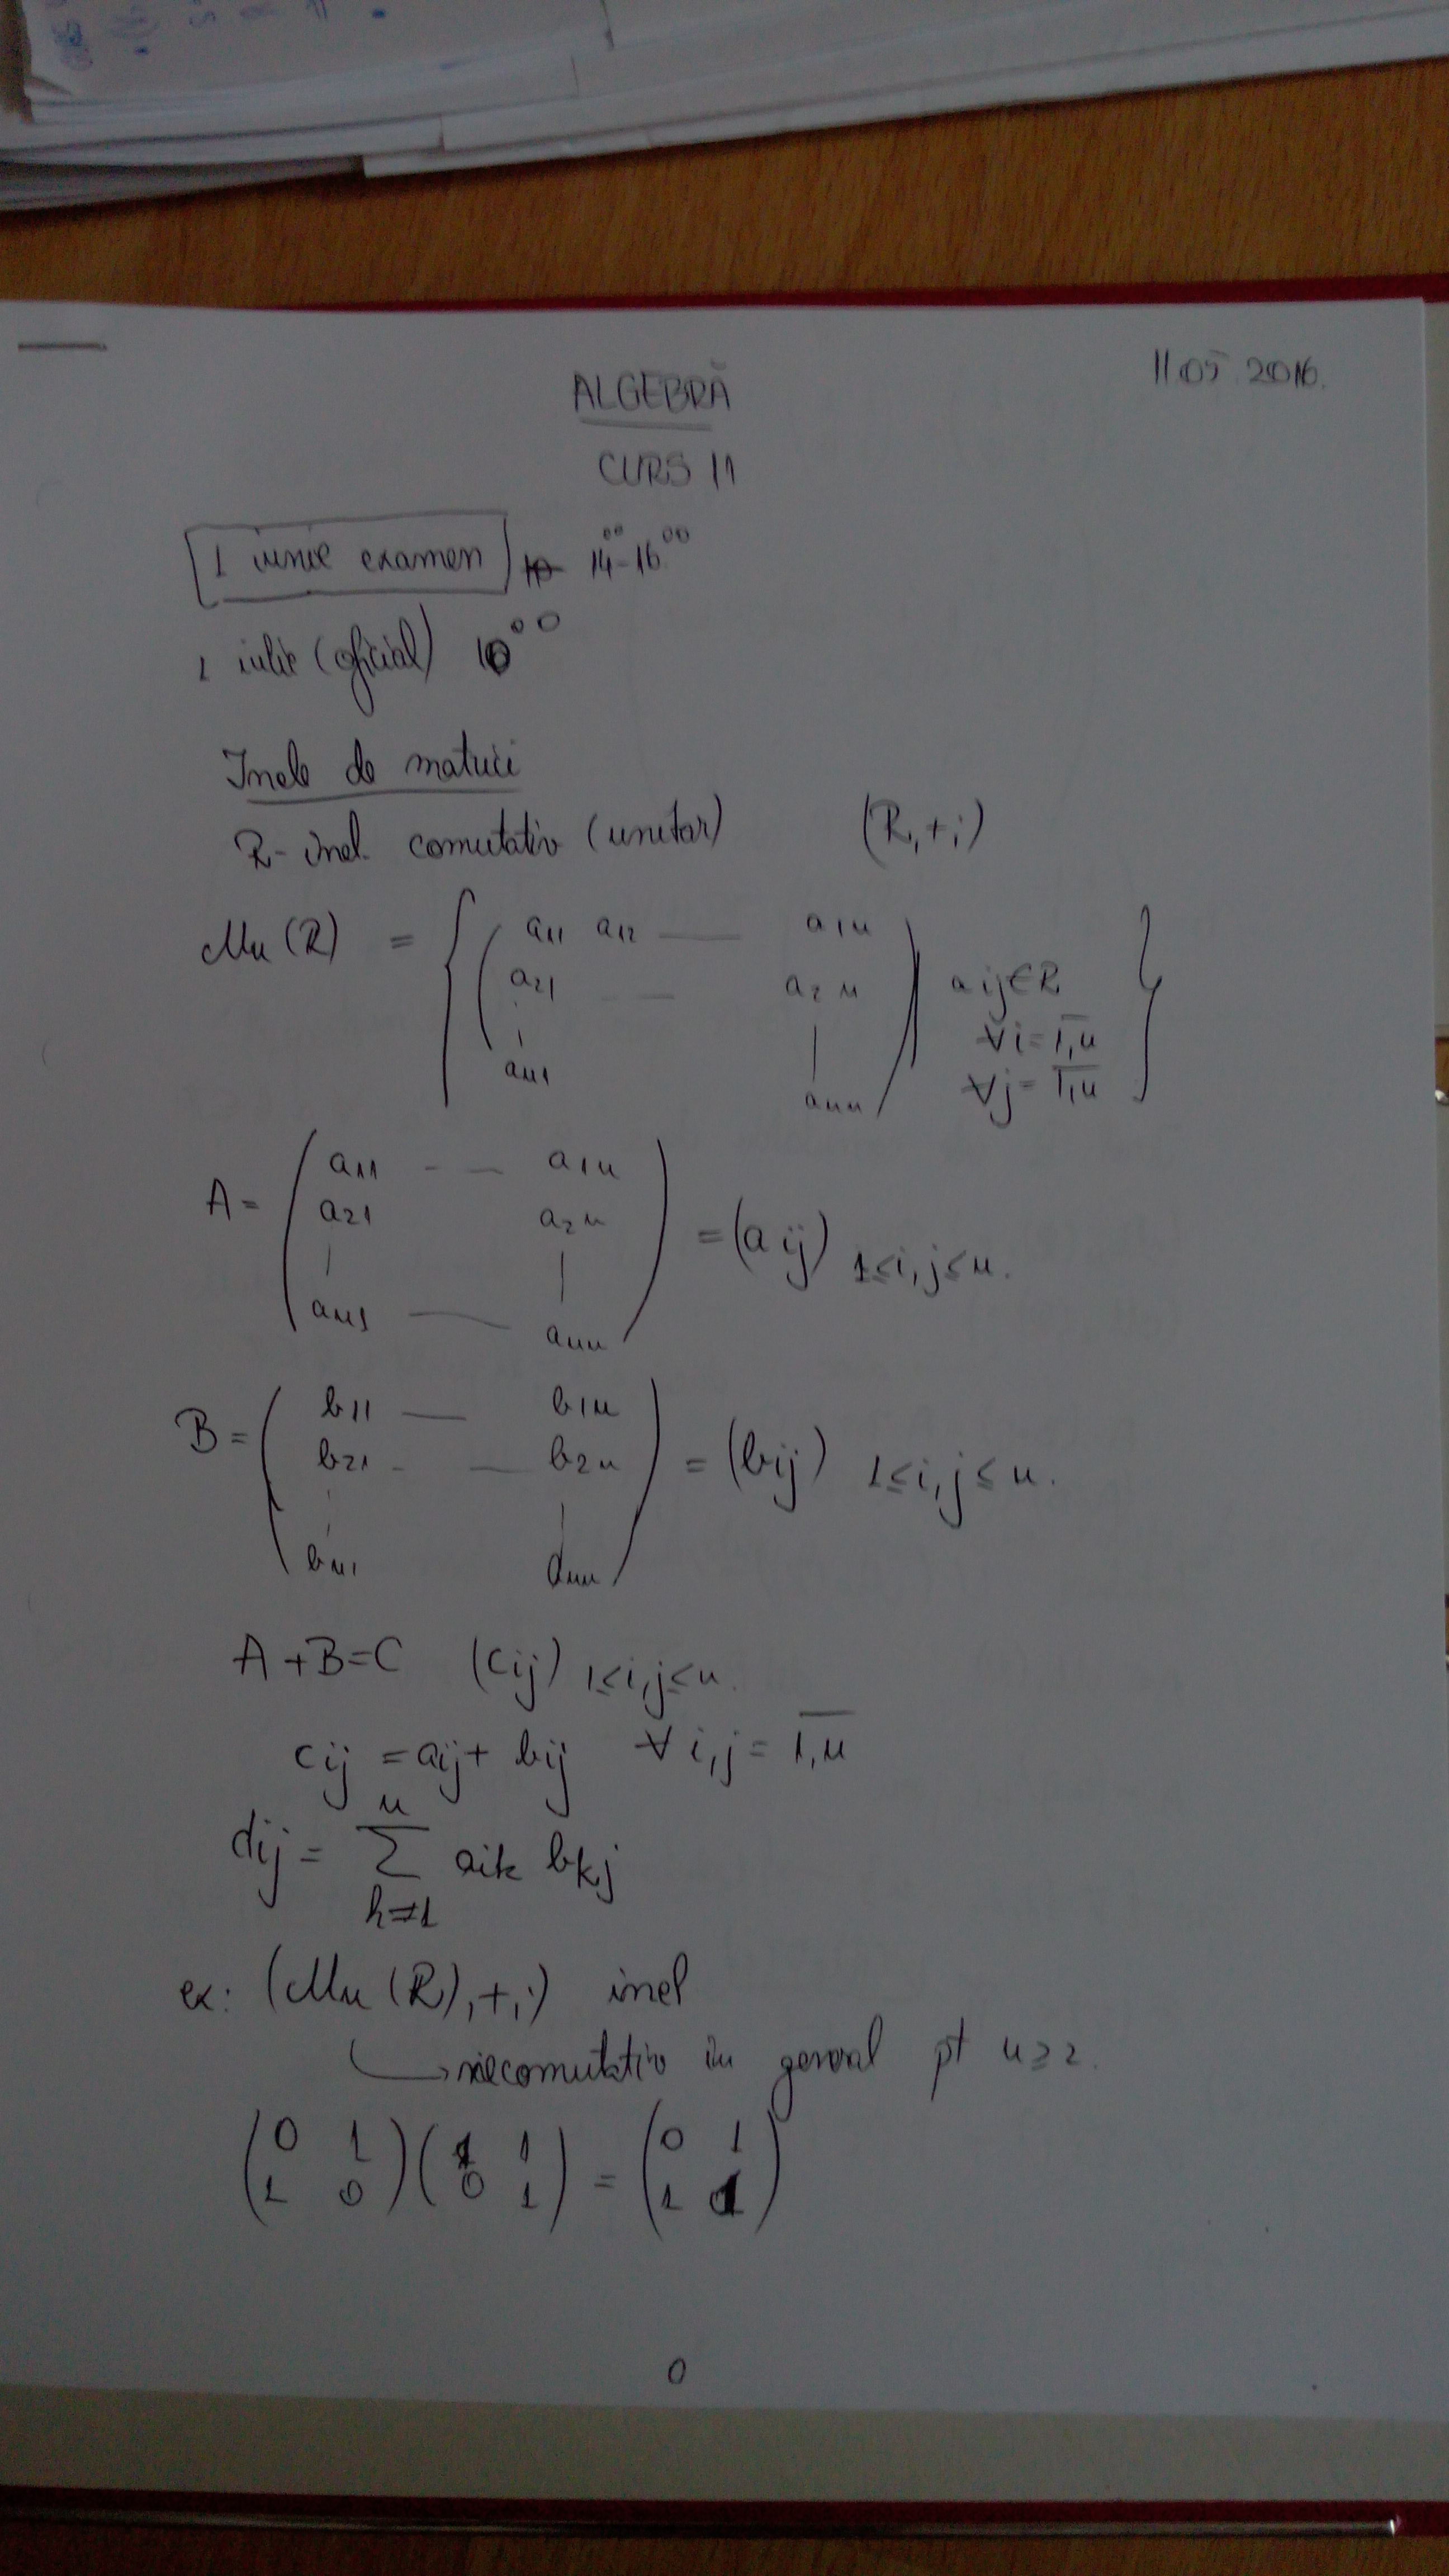 11.05.2016.
ALGEBRĂ
CURS 11
1 iunie examen 14⁰⁰-16⁰⁰
1 iulie (oficial) 10⁰⁰
Inele de matrici
R- inel comutativ (unitar) (R,+,·)
Mn (R) = { ( a11 a12 — a1n
a21 - - a2n
an1 ann ) aij∈R ∀i=1,n ∀j=1,n }
A= ( a11 - - a1n
a21 a2n
an1 — ann ) = (aij) 1≤i,j≤n.
B= ( b11 — b1n
b21 - — b2n
bn1 dnn ) = (bij) 1≤i,j≤n.
A+B=C (cij) 1≤i,j≤n.
cij = aij+ bij ∀ i,j= 1,n
dij = ∑ⁿₖ₌₁ aik bkj
ex: (Mn (R),+,·) inel
→ necomutativ în general pt n≥2.
( 0 1 ) ( 1 1 ) = ( 0 1 )
( 1 0 ) ( 0 1 ) ( 1 1 )
0